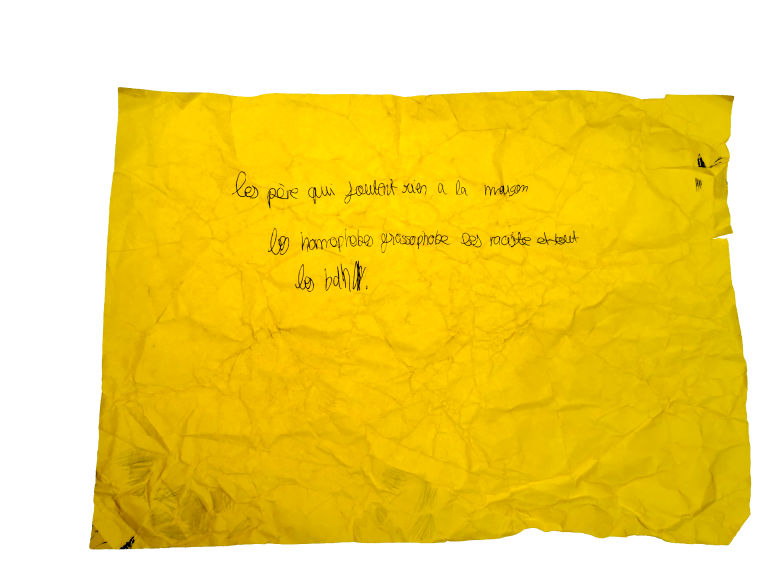 les père qui foutent rien a la maison
les homophobes grossophobe les raciste et tout
les bdh